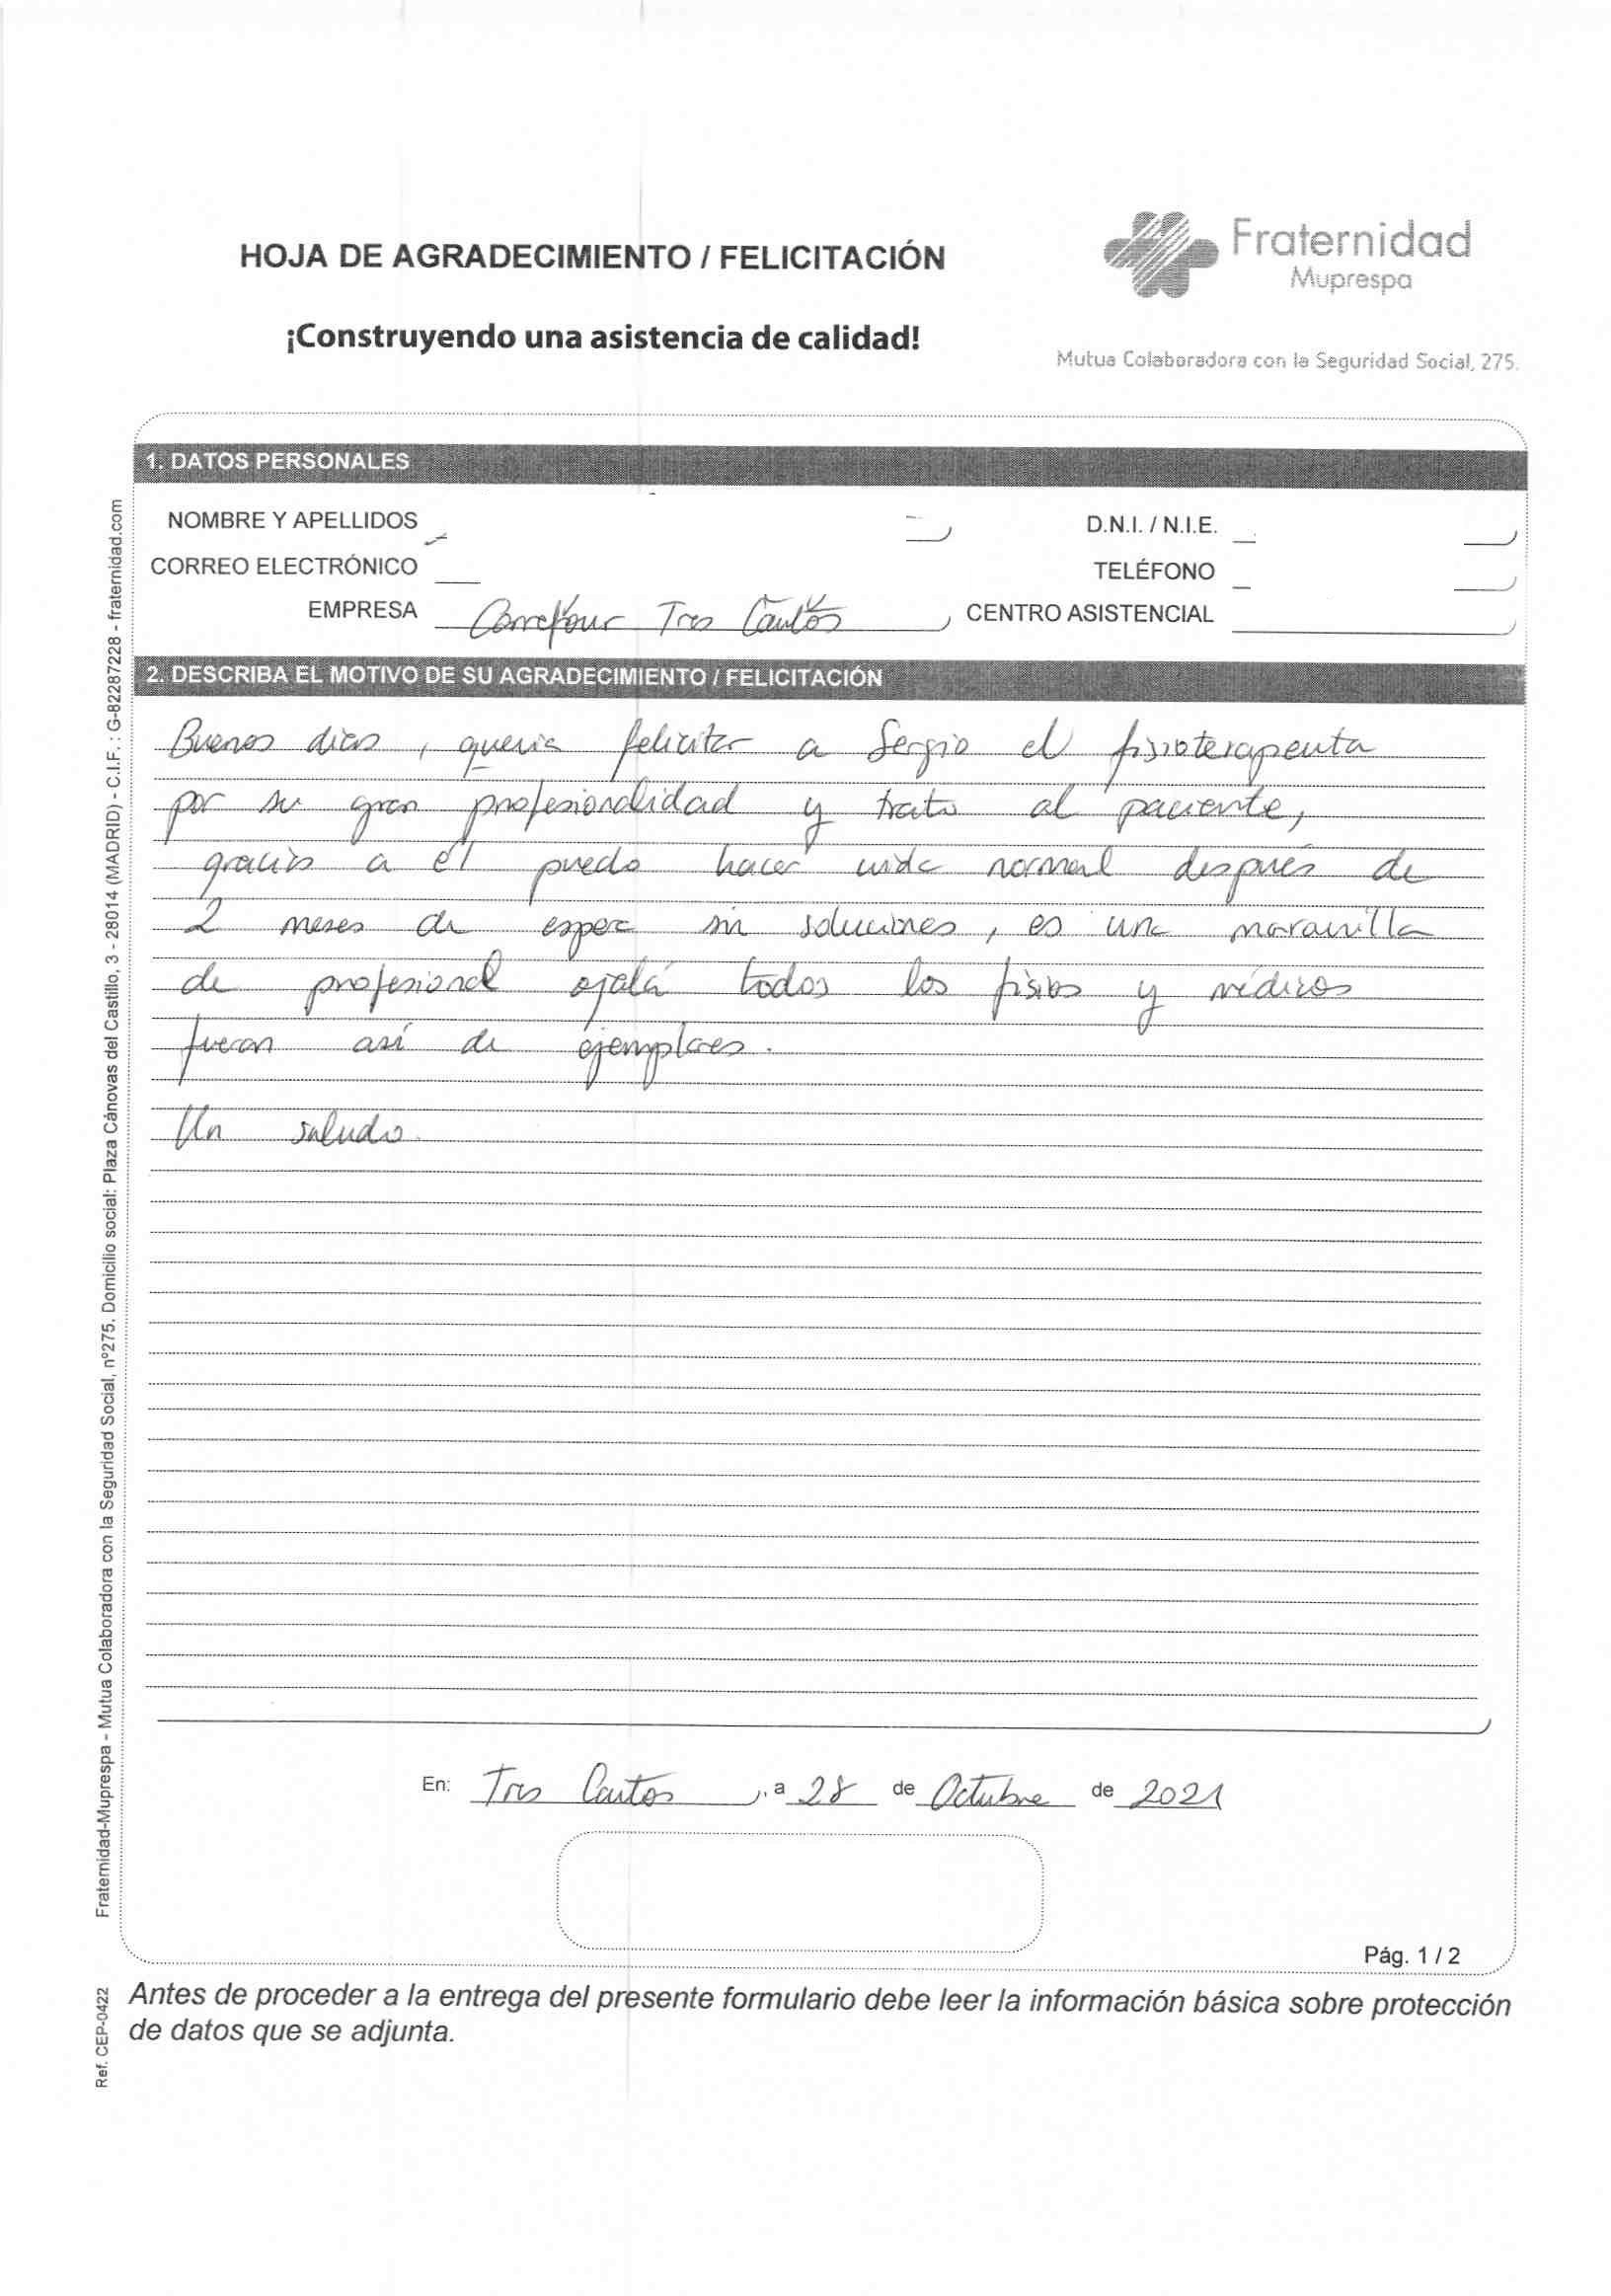 HOJA DE AGRADECIMIENTO / FELICITACIÓN
¡Construyendo una asistencia de calidad!
Fraternidad
Muprespa
Mutua Colaboradora con la Seguridad Social, 275.
1. DATOS PERSONALES
NOMBRE Y APELLIDOS
D.N.I. / N.I.E.
CORREO ELECTRÓNICO
TELÉFONO
EMPRESA Carrefour Tres Cantos CENTRO ASISTENCIAL
2. DESCRIBA EL MOTIVO DE SU AGRADECIMIENTO / FELICITACIÓN
Buenos dias, queria felicitar a Sergio el fisioterapeuta
por su gran profesionalidad y trato al paciente,
gracias a él puedo hacer vida normal después de
2 meses de espera sin soluciones, es una maravilla
de profesional ojalá todos los fisios y médicos
fueran así de ejemplares.
Un saludo.
En: Tres Cantos, a 28 de Octubre de 2021
Pág. 1 / 2
Antes de proceder a la entrega del presente formulario debe leer la información básica sobre protección
de datos que se adjunta.
Fraternidad-Muprespa - Mutua Colaboradora con la Seguridad Social, nº275. Domicilio social: Plaza Cánovas del Castillo, 3 - 28014 (MADRID) - C.I.F. : G-82287228 - fraternidad.com
Ref. CEP-0422